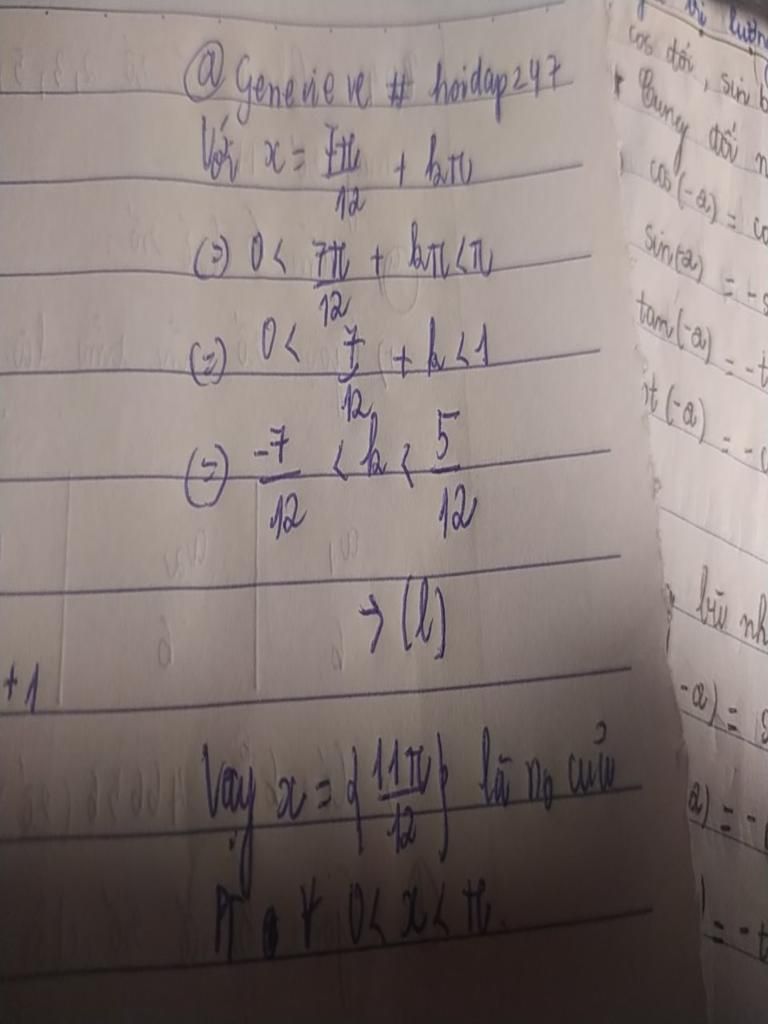 @ Genevieve # hoidap247
Với x = 7π/12 + kπ
(=) 0 < 7π/12 + kπ < π
(=) 0 < 7/12 + k < 1
(=) -7/12 < k < 5/12
→ (l)
+1
Vậy x = {11π/12} là no của
PT ∀ 0 < x < π.
cos đối, sin b
Cung đối n
cos(-a) = co
sin(-a) = -s
tan(-a) = -t
t(-a) = -c
bù nh
-a) =
a) = -
= -t